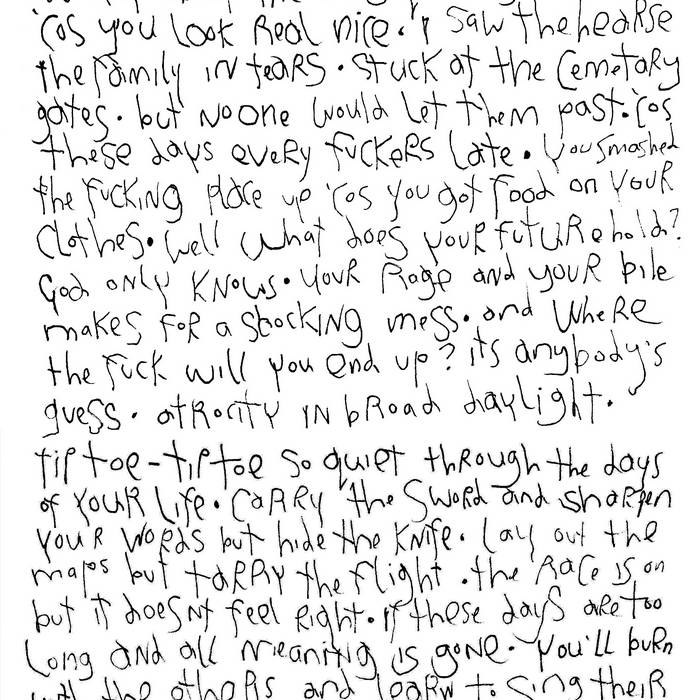 'cos you look Real nice. I saw the heaRse
the family in teaRs. stuck at the Cemetary
gates. but no one would let them past. 'cos
these days eveRy fuckeRs late. You smashed
the fucking place up 'cos you got food on youR
clothes. well what does youR futuRe hold?
God only knows. YouR Rage and youR bile
makes foR a shocking mess. and wheRe
the fuck will you end up? its anybody's
guess. atRocity in bRoad daylight.
tiptoe-tiptoe so quiet thRough the days
of youR life. CaRRy the SwoRd and shaRpen
youR woRds but hide the knife. lay out the
maps but taRRy the flight. the Race is on
but it doesnt feel Right. if these days aRe too
long and all meaning is gone. You'll buRn
with the otheRs and leaRn to sing theiR